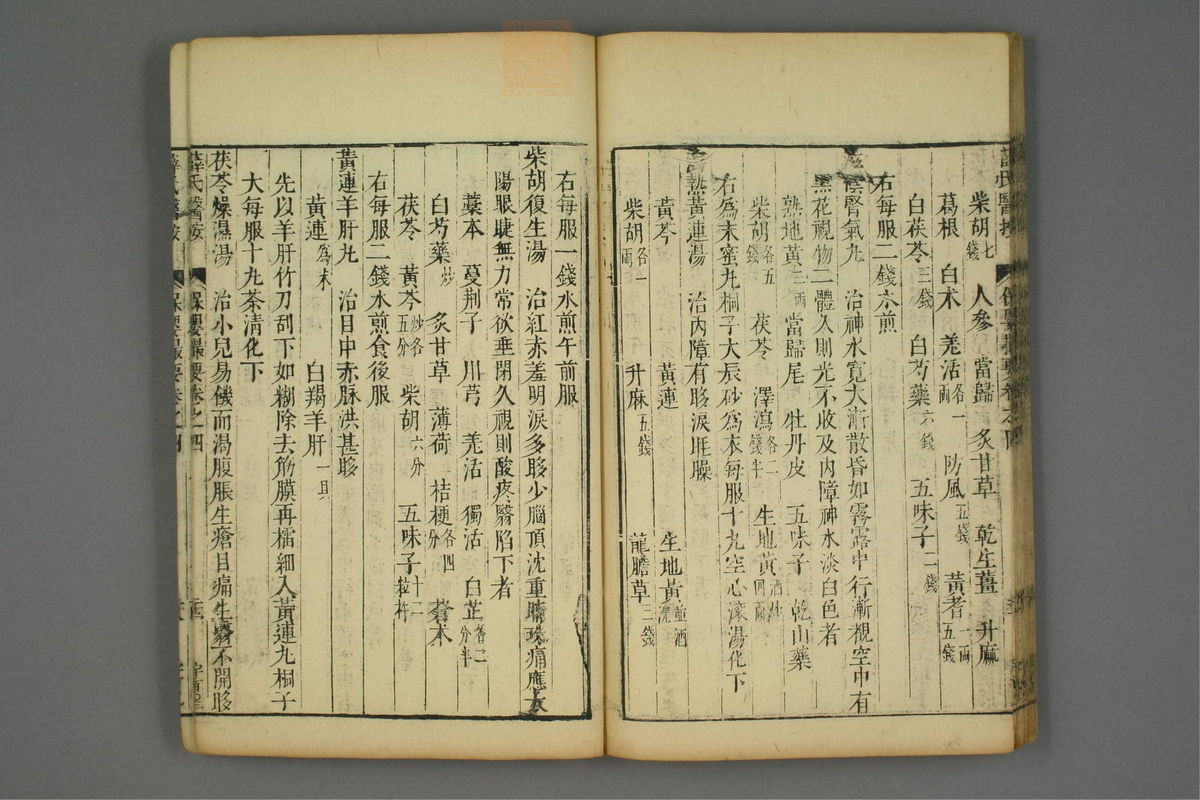 柴胡七錢 人參 當歸 炙甘草 乾生薑 升麻
葛根 白术 羌活各一兩 防風五錢 黃耆一兩五錢
白茯苓三錢 白芍藥六錢 五味子二錢
右每服二錢水煎
腎氣丸 治神水寬大漸散昏如霧露中行漸覩空中有
黑花視物二體久則光不收及內障神水淡白色者
熟地黃二兩 當歸尾 牡丹皮 五味子 乾山藥
柴胡各五錢 茯苓 澤瀉各二錢半 生地黃酒炒四兩
右為末蜜丸桐子大辰砂為衣每服十丸空心滾湯化下
熱黃連湯 治內障有眵淚眊臊
黃芩 黃連 生地黃並酒洗
柴胡各一兩 升麻五錢 龍膽草三錢
右每服一錢水煎午前服
柴胡復生湯 治紅赤羞明淚多眵少腦頂沈重睛珠痛應太
陽眼睫無力常欲垂閉久視則酸疼翳陷下者
藁本 蔓荆子 川芎 羌活 獨活 白芷各二分半
白芍藥炒 炙甘草 薄荷 桔梗各四分 蒼朮
茯苓 黃芩炒各五分 柴胡六分 五味子十二粒杵
右每服二錢水煎食後服
黃連羊肝丸 治目中赤脉洪甚眵
黃連為末 白羯羊肝一具
先以羊肝竹刀刮下如糊除去筋膜再擂細入黃連丸桐子
大每服十丸茶清化下
茯苓燥濕湯 治小兒易饑而渴腹脹生瘡目痛生翳不開眵
薛氏醫按 保嬰撮要卷之四